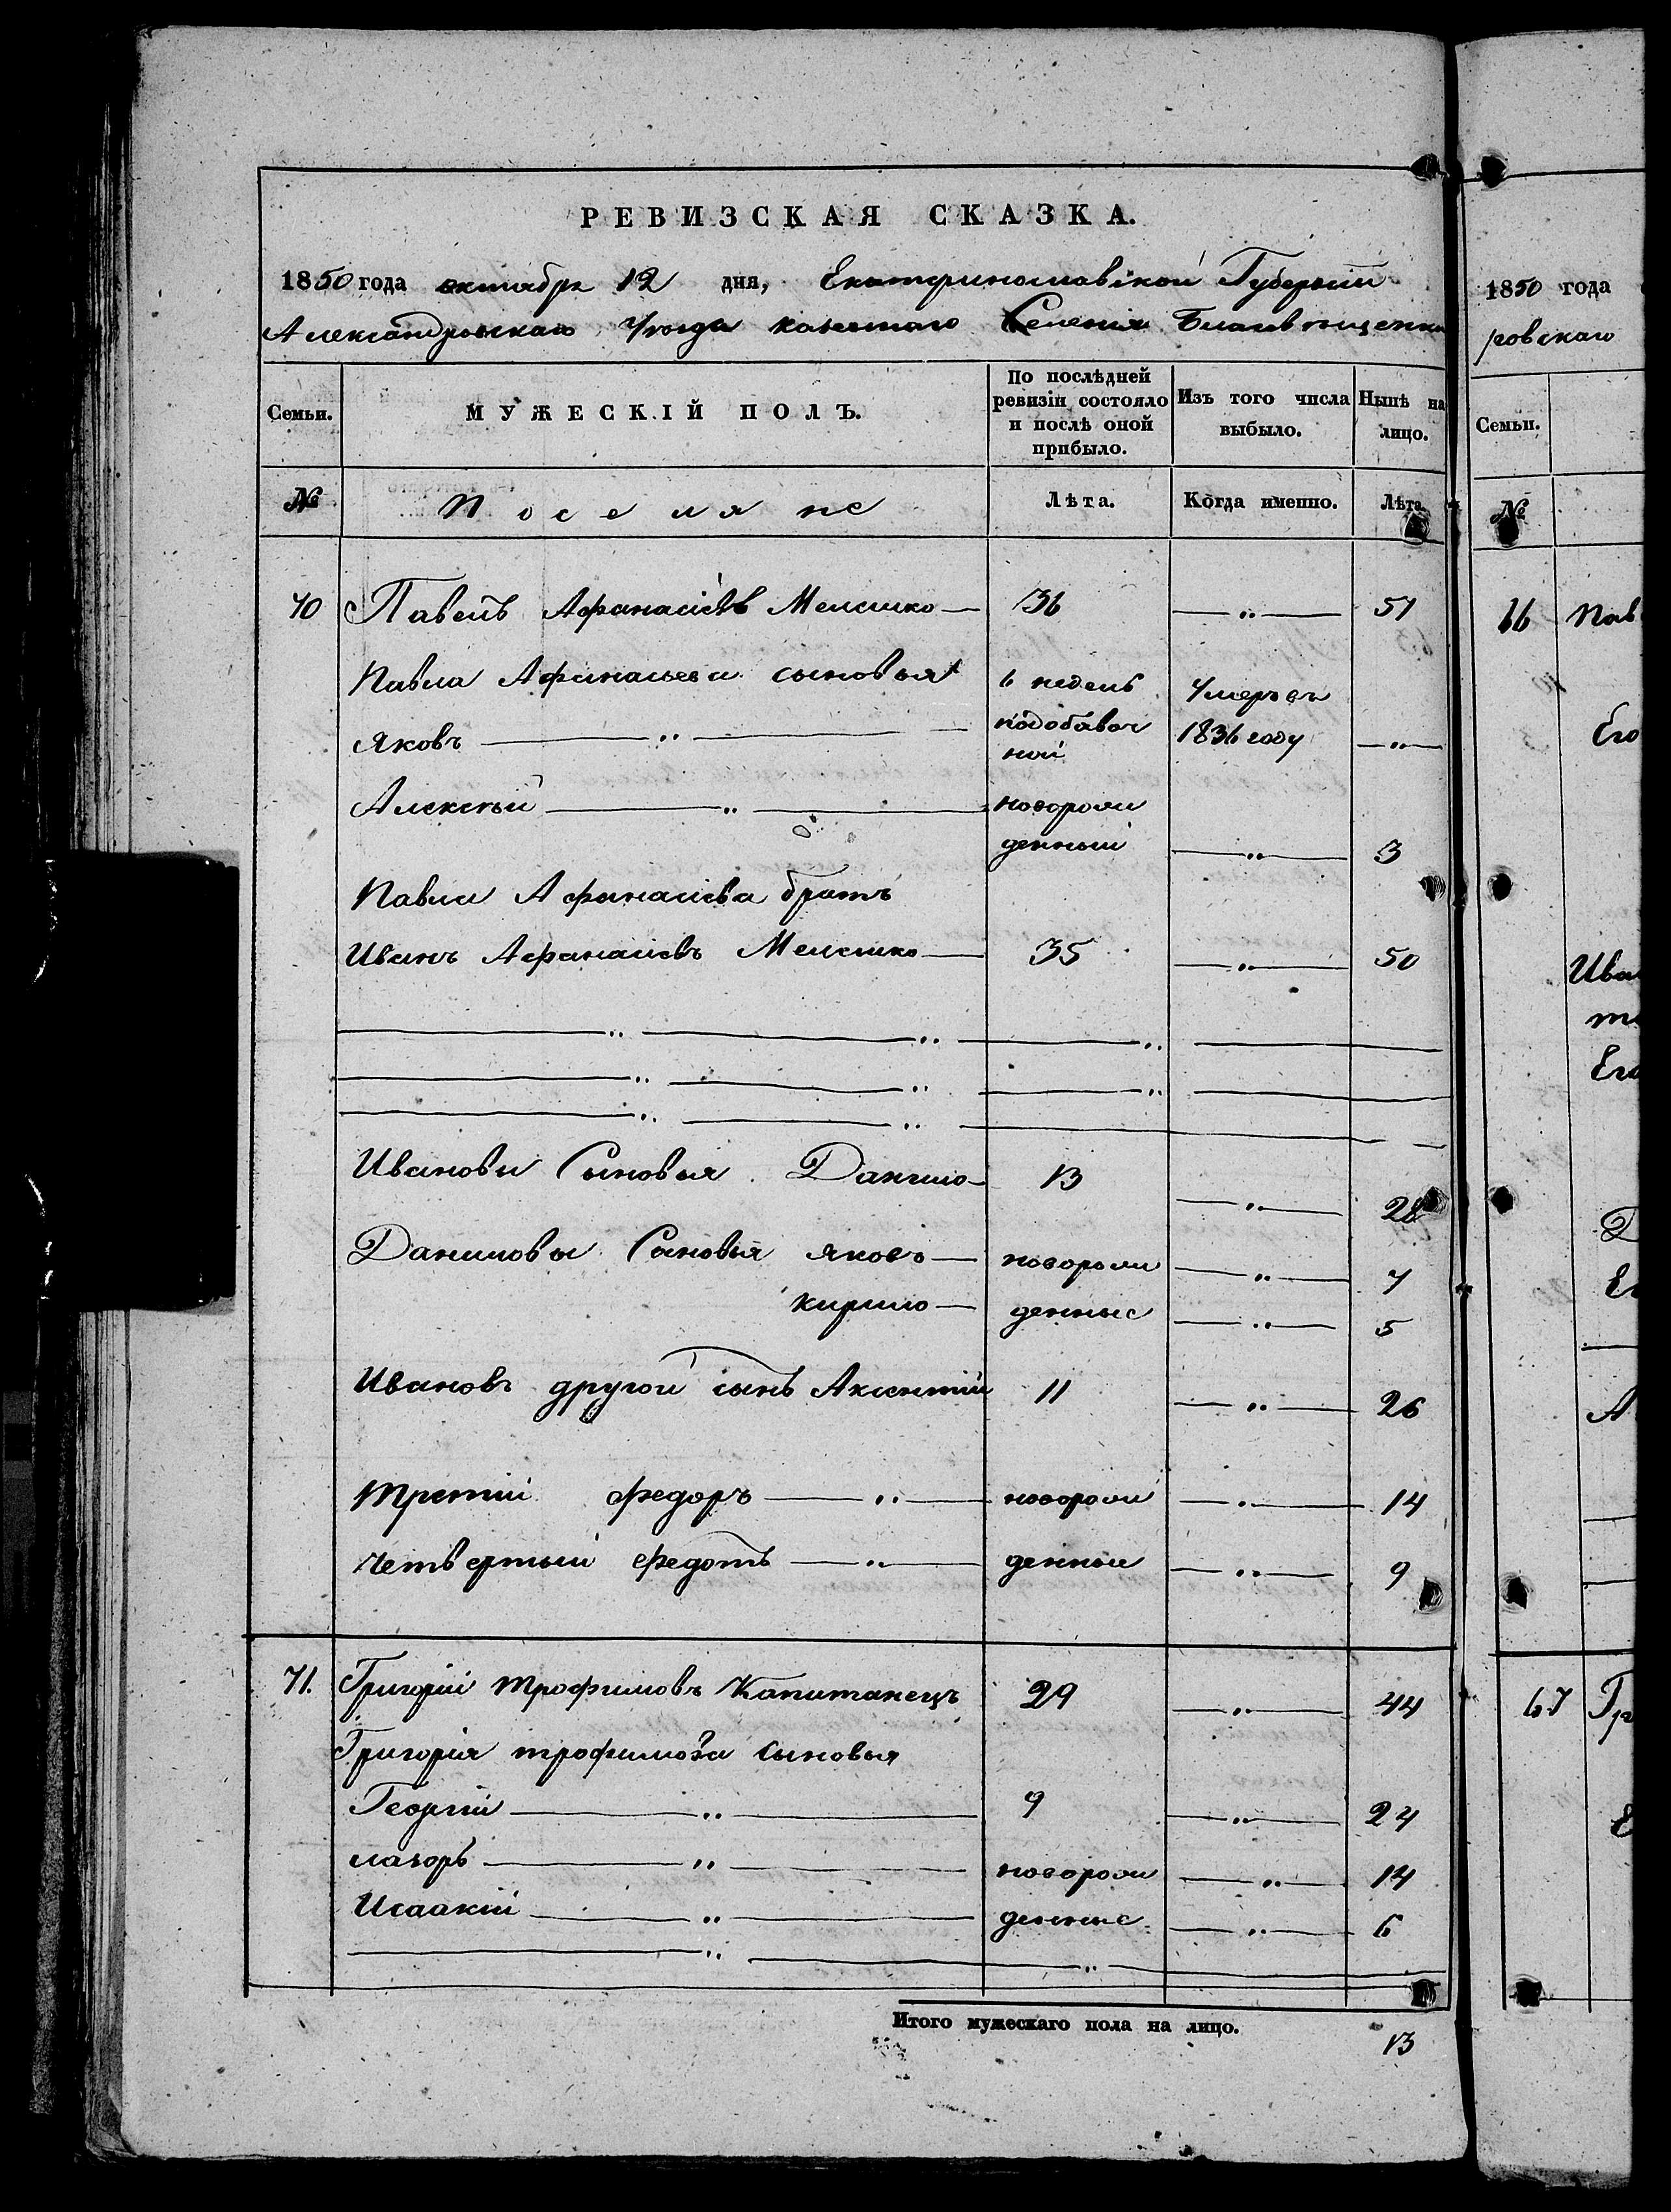 РЕВИЗСКАЯ СКАЗКА.
1850 года октября 12 дня, Екатеринославской Губернии
Александровскаго Уезда казеннаго Селения Благовещенки
Семьи. МУЖЕСКІЙ ПОЛЪ. По послѣдней ревизіи состояло и послѣ оной прибыло. Изъ того числа выбыло. Нынѣ на лицо.
№ Поселяне Лѣта. Когда именно. Лѣта
70 Павелъ Афанасіевъ Мелешко — 36 — „ — 51
Павла Афанасьева сыновья 6 недель Умеръ въ
Яковъ — „ — подобавоч 1836 году — „ —
ной
Алексѣй — „ — новорож
денный — „ — 3
Павла Афанасіева братъ
Иванъ Афанасіевъ Мелешко — 35 — „ — 50
Ивановы Сыновья Данило — 13 — „ — 28
Даниловы Сыновья Яковъ — новорож — „ — 7
Кирило — денные — „ — 5
Ивановъ другой сынъ Аксентій 11 — „ — 26
Третій Федоръ — „ — новорож — „ — 14
Четвертый Федотъ — „ — денные — „ — 9
71. Григорій Трофимовъ Капитанецъ 29 — „ — 44
Григорія Трофимова Сыновья
Георгій — „ — 9 — „ — 24
Лазорь — „ — новорож — „ — 14
Исаакій — „ — денные — „ — 6
Итого мужескаго пола на лицо. 13
1850 года
ровскаго
Семьи.
№
66 Пав
Его
Ива
Его
Д
А
67 Гр